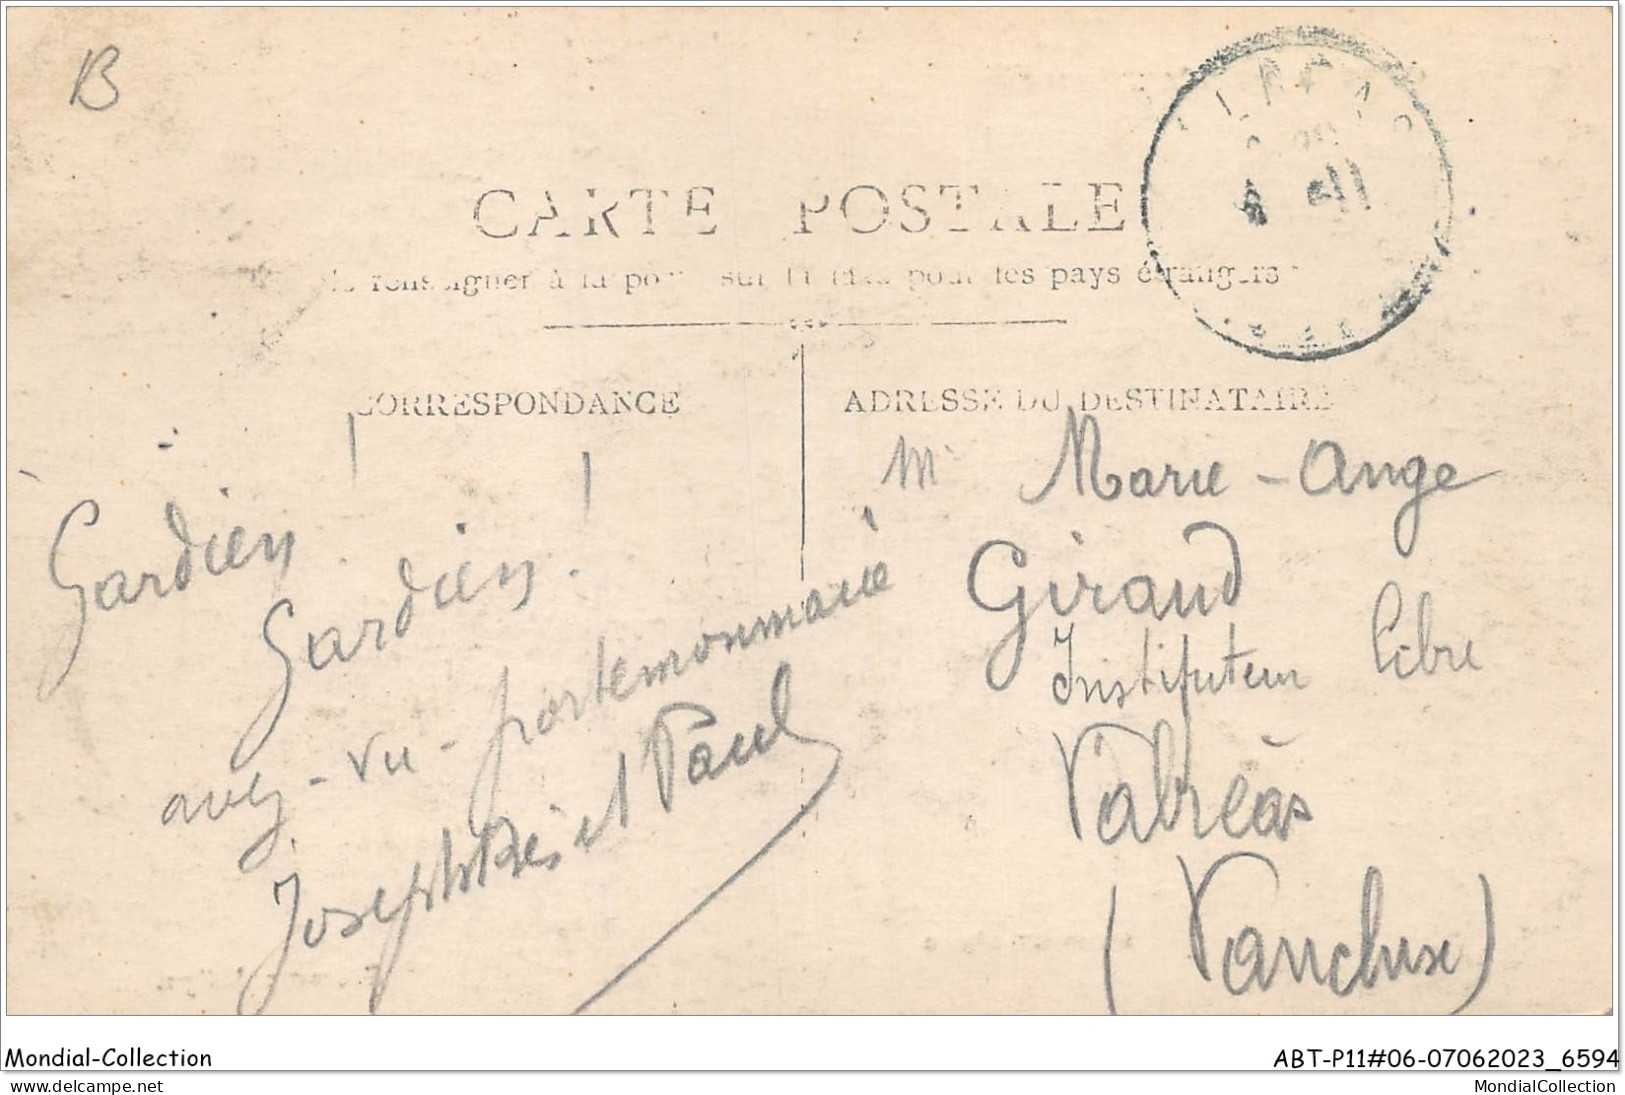 B
CARTE POSTALE
à la poste sur la liste pour les pays étrangers
CORRESPONDANCE
ADRESSE DU DESTINATAIRE
Gardien !
Gardien !
avez-vu-portemonmaie
Joseph et Paul
Mr Marie-Ange
Giraud
Instituteur libre
Valréas
(Vaucluse)
11
Mondial-Collection
ABT-P11#06-07062023_6594
MondialCollection